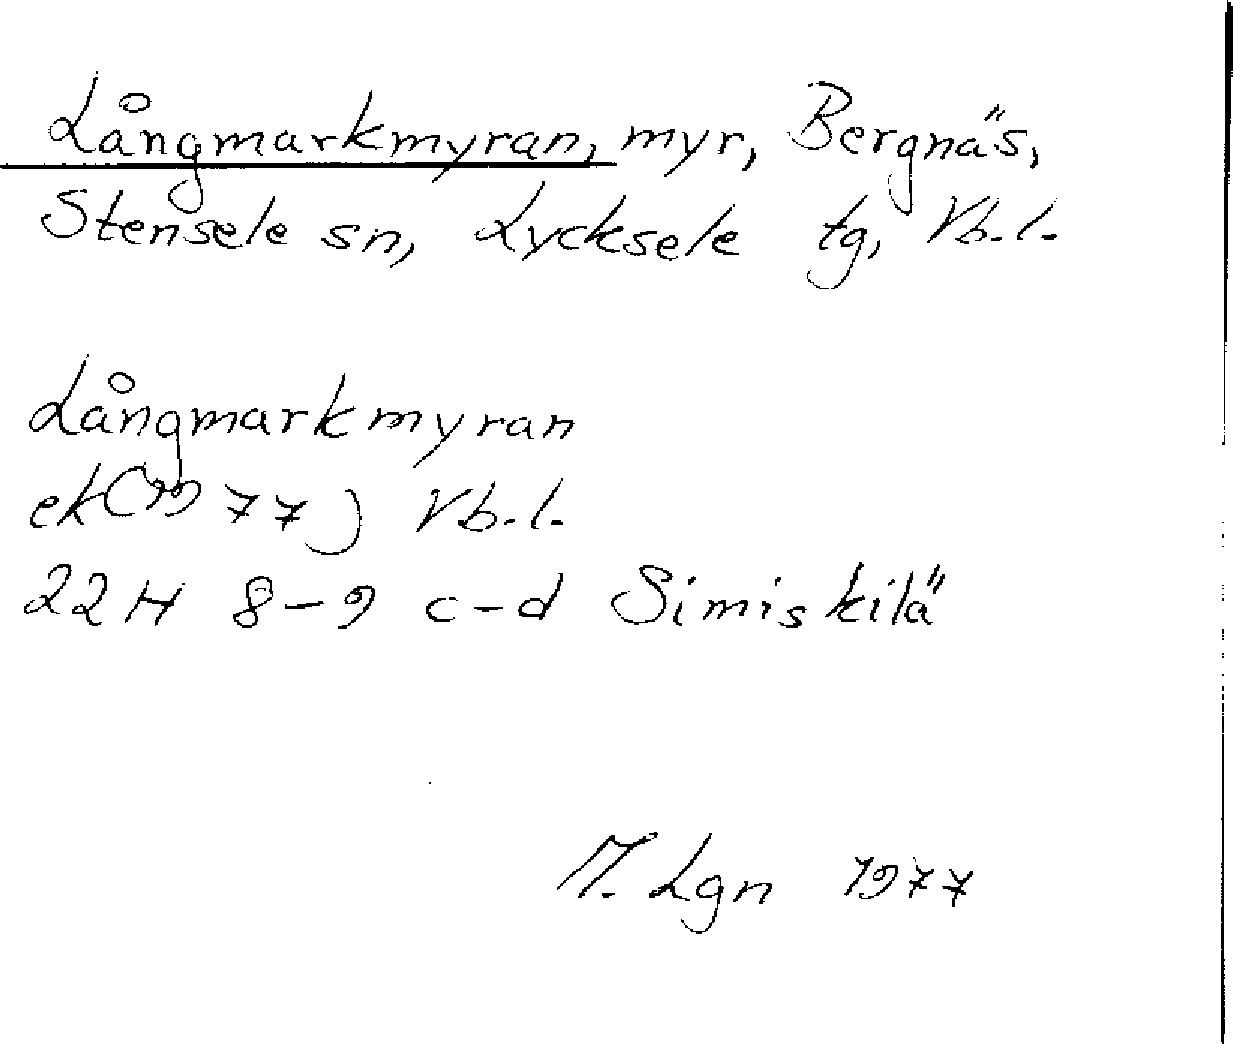 Långmarkmyran, myr, Bergnäs,
Stensele sn, Lycksele tg, Vb.l.
Långmarkmyran
ek(m77) Vb.l.
22H 8-9 c-d Simiskilä
M. Lgn 1977